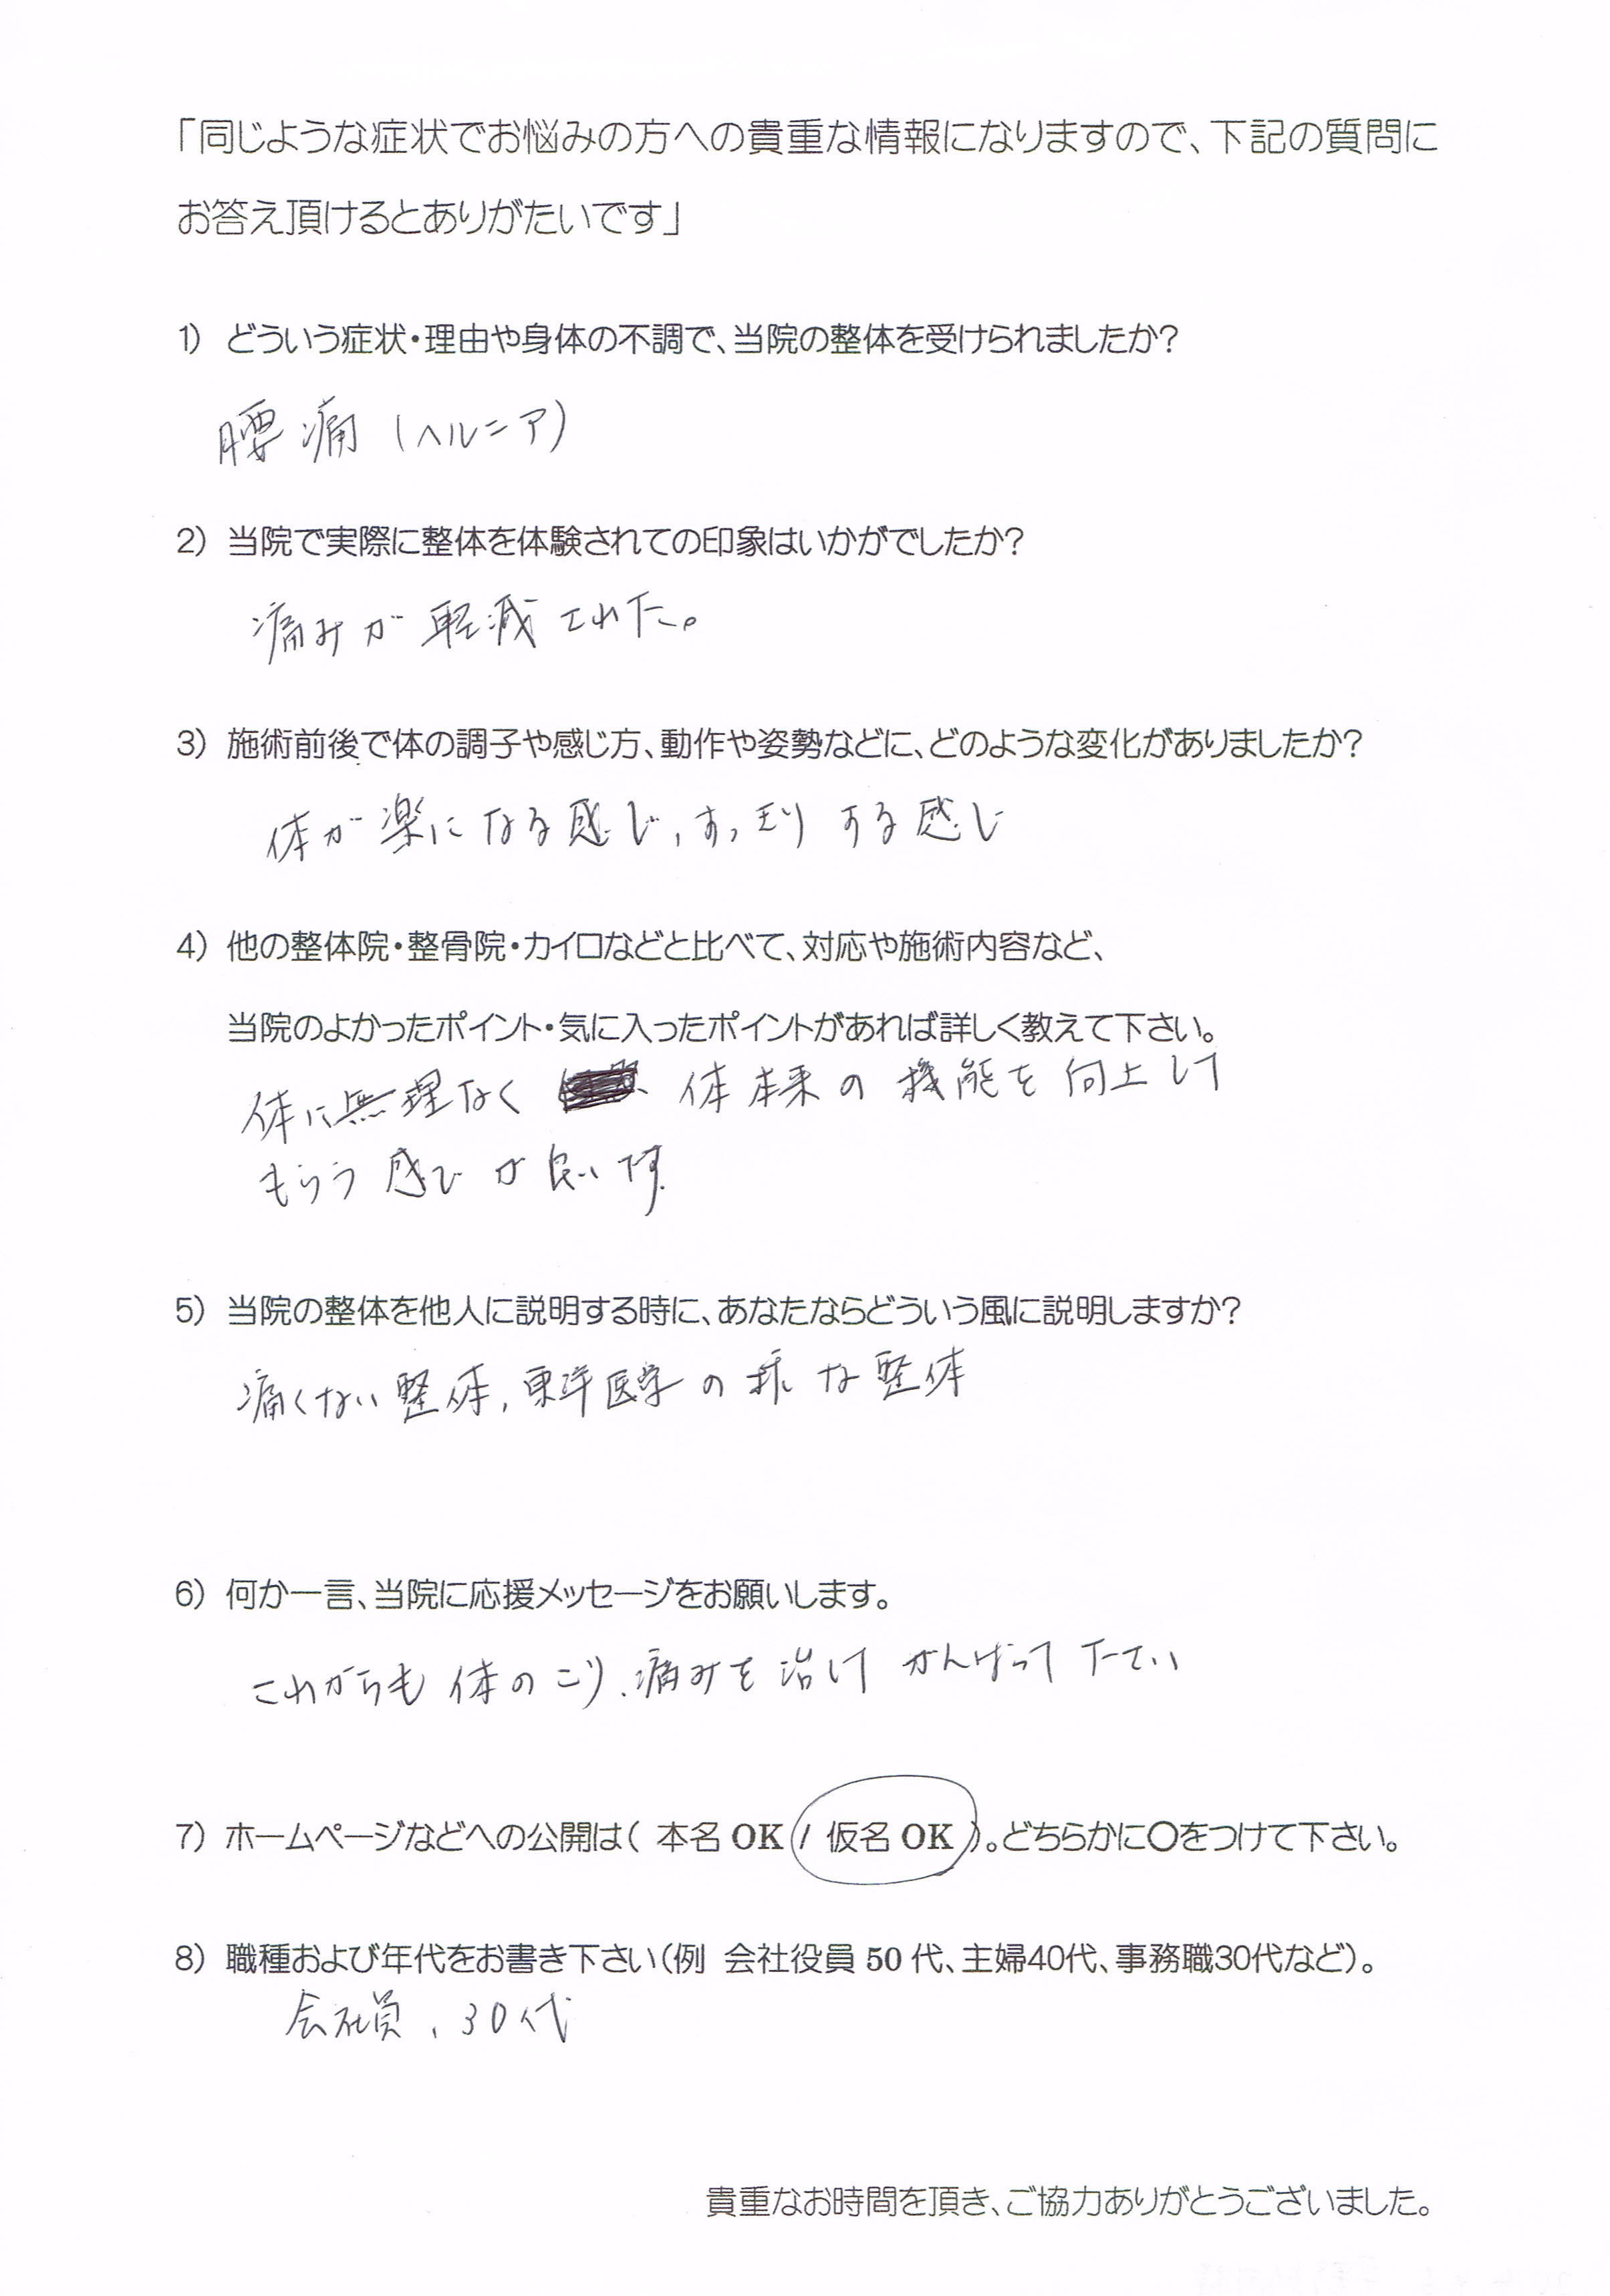 「同じような症状でお悩みの方への貴重な情報になりますので、下記の質問に
お答え頂けるとありがたいです」
1) どういう症状・理由や身体の不調で、当院の整体を受けられましたか?
腰痛(ヘルニア)
2) 当院で実際に整体を体験されての印象はいかがでしたか?
痛みが軽減された。
3) 施術前後で体の調子や感じ方、動作や姿勢などに、どのような変化がありましたか?
体が楽になる感じ、すっきりする感じ
4) 他の整体院・整骨院・カイロなどと比べて、対応や施術内容など、
当院のよかったポイント・気に入ったポイントがあれば詳しく教えて下さい。
体に無理なく 体本来の機能を向上して
もらう感じが良いです.
5) 当院の整体を他人に説明する時に、あなたならどういう風に説明しますか?
痛くない整体、東洋医学の様な整体
6) 何か一言、当院に応援メッセージをお願いします。
これからも体のこり、痛みを治してがんばって下さい
7) ホームページなどへの公開は( 本名 OK / 仮名 OK )。どちらかに〇をつけて下さい。
8) 職種および年代をお書き下さい(例 会社役員 50 代、主婦40代、事務職30代など)。
会社員、30代
貴重なお時間を頂き、ご協力ありがとうございました。